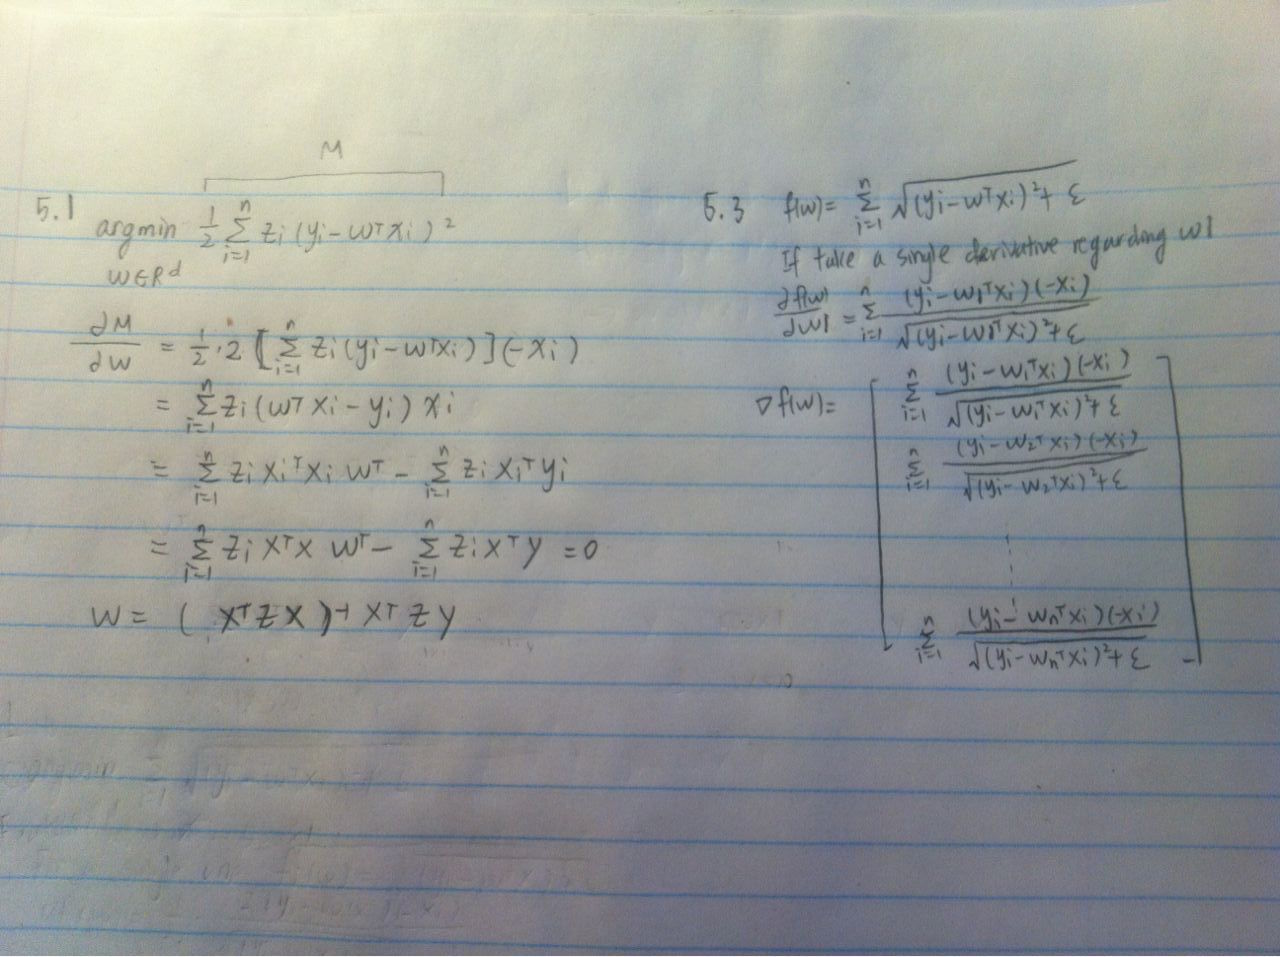 M
5.1
argmin 1/2 Σ_{i=1}^{n} zi (yi − wᵀxi)²
w∈ℝᵈ
∂M/∂w = 1/2 · 2 [ Σ_{i=1}^{n} zi (yi − wᵀxi) ] (−xi)
= Σ_{i=1}^{n} zi (wᵀxi − yi) xi
= Σ_{i=1}^{n} zi xiᵀxi wᵀ − Σ_{i=1}^{n} zi xiᵀ yi
= Σ_{i=1}^{n} zi xᵀx wᵀ − Σ_{i=1}^{n} zi xᵀ y = 0
W = ( xᵀ z x )⁺ xᵀ z y
5.3 f(w) = Σ_{i=1}^{n} √((yi − wᵀxi)² + ε)
If take a single derivative regarding w1
∂f(w)/∂w1 = Σ_{i=1}^{n} (yi − w1ᵀxi)(−xi) / √((yi − w1ᵀxi)² + ε)
∇f(w) = [ Σ_{i=1}^{n} (yi − w1ᵀxi)(−xi) / √((yi − w1ᵀxi)² + ε)
Σ_{i=1}^{n} (yi − w2ᵀxi)(−xi) / √((yi − w2ᵀxi)² + ε)
⋮
Σ_{i=1}^{n} (yi − wnᵀxi)(−xi) / √((yi − wnᵀxi)² + ε) ]